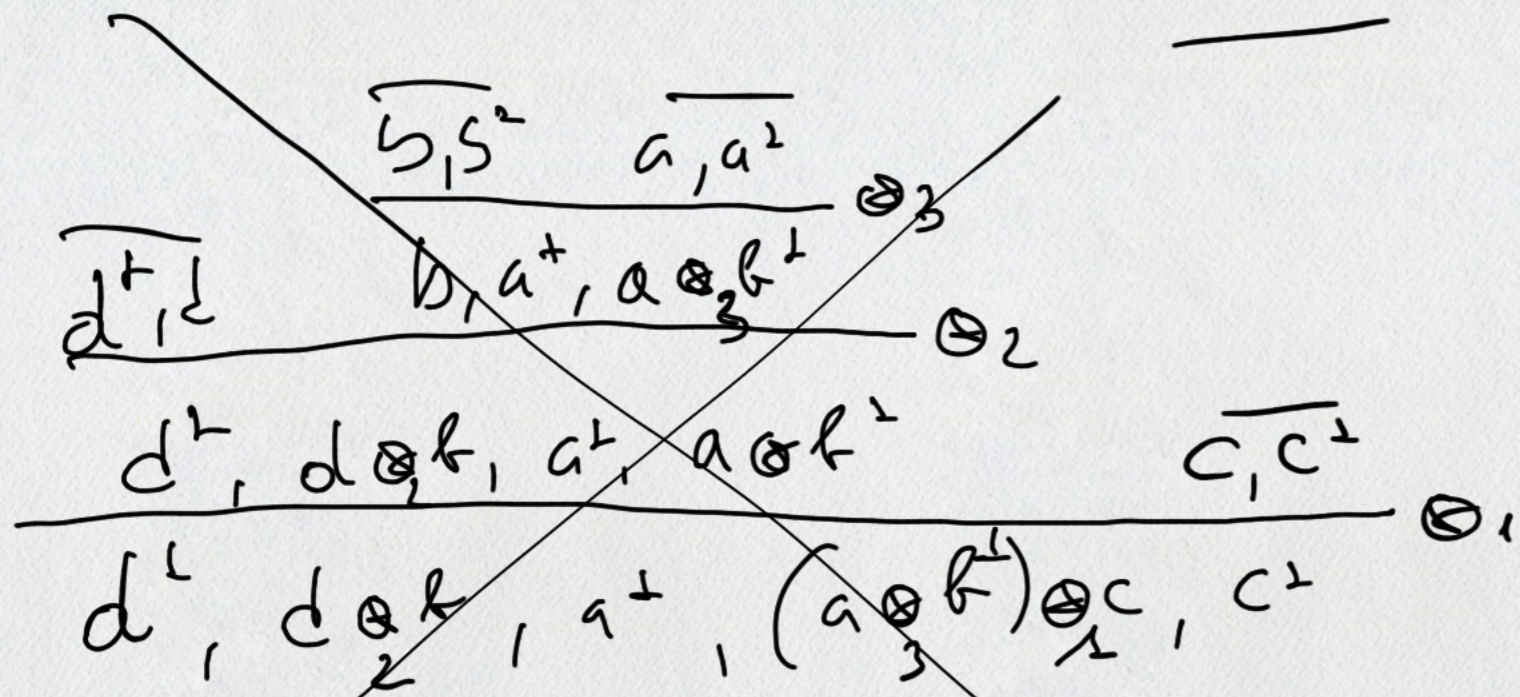 b, b^⊥    a, a^⊥
⊗_3
d^⊥, d    b, a^⊥, a ⊗_3 b^⊥
⊗_2
d^⊥, d ⊗_2 b, a^⊥, a ⊗ b^⊥    c, c^⊥
⊗_1
d^⊥, d ⊗_2 b, a^⊥, (a ⊗_3 b^⊥) ⊗_1 c, c^⊥